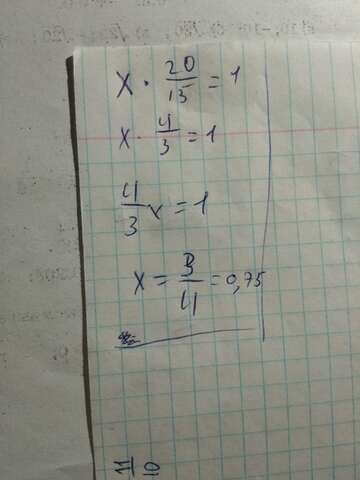 x · 20/15 = 1
x · 4/3 = 1
4/3 x = 1
x = 3/4 = 0,75